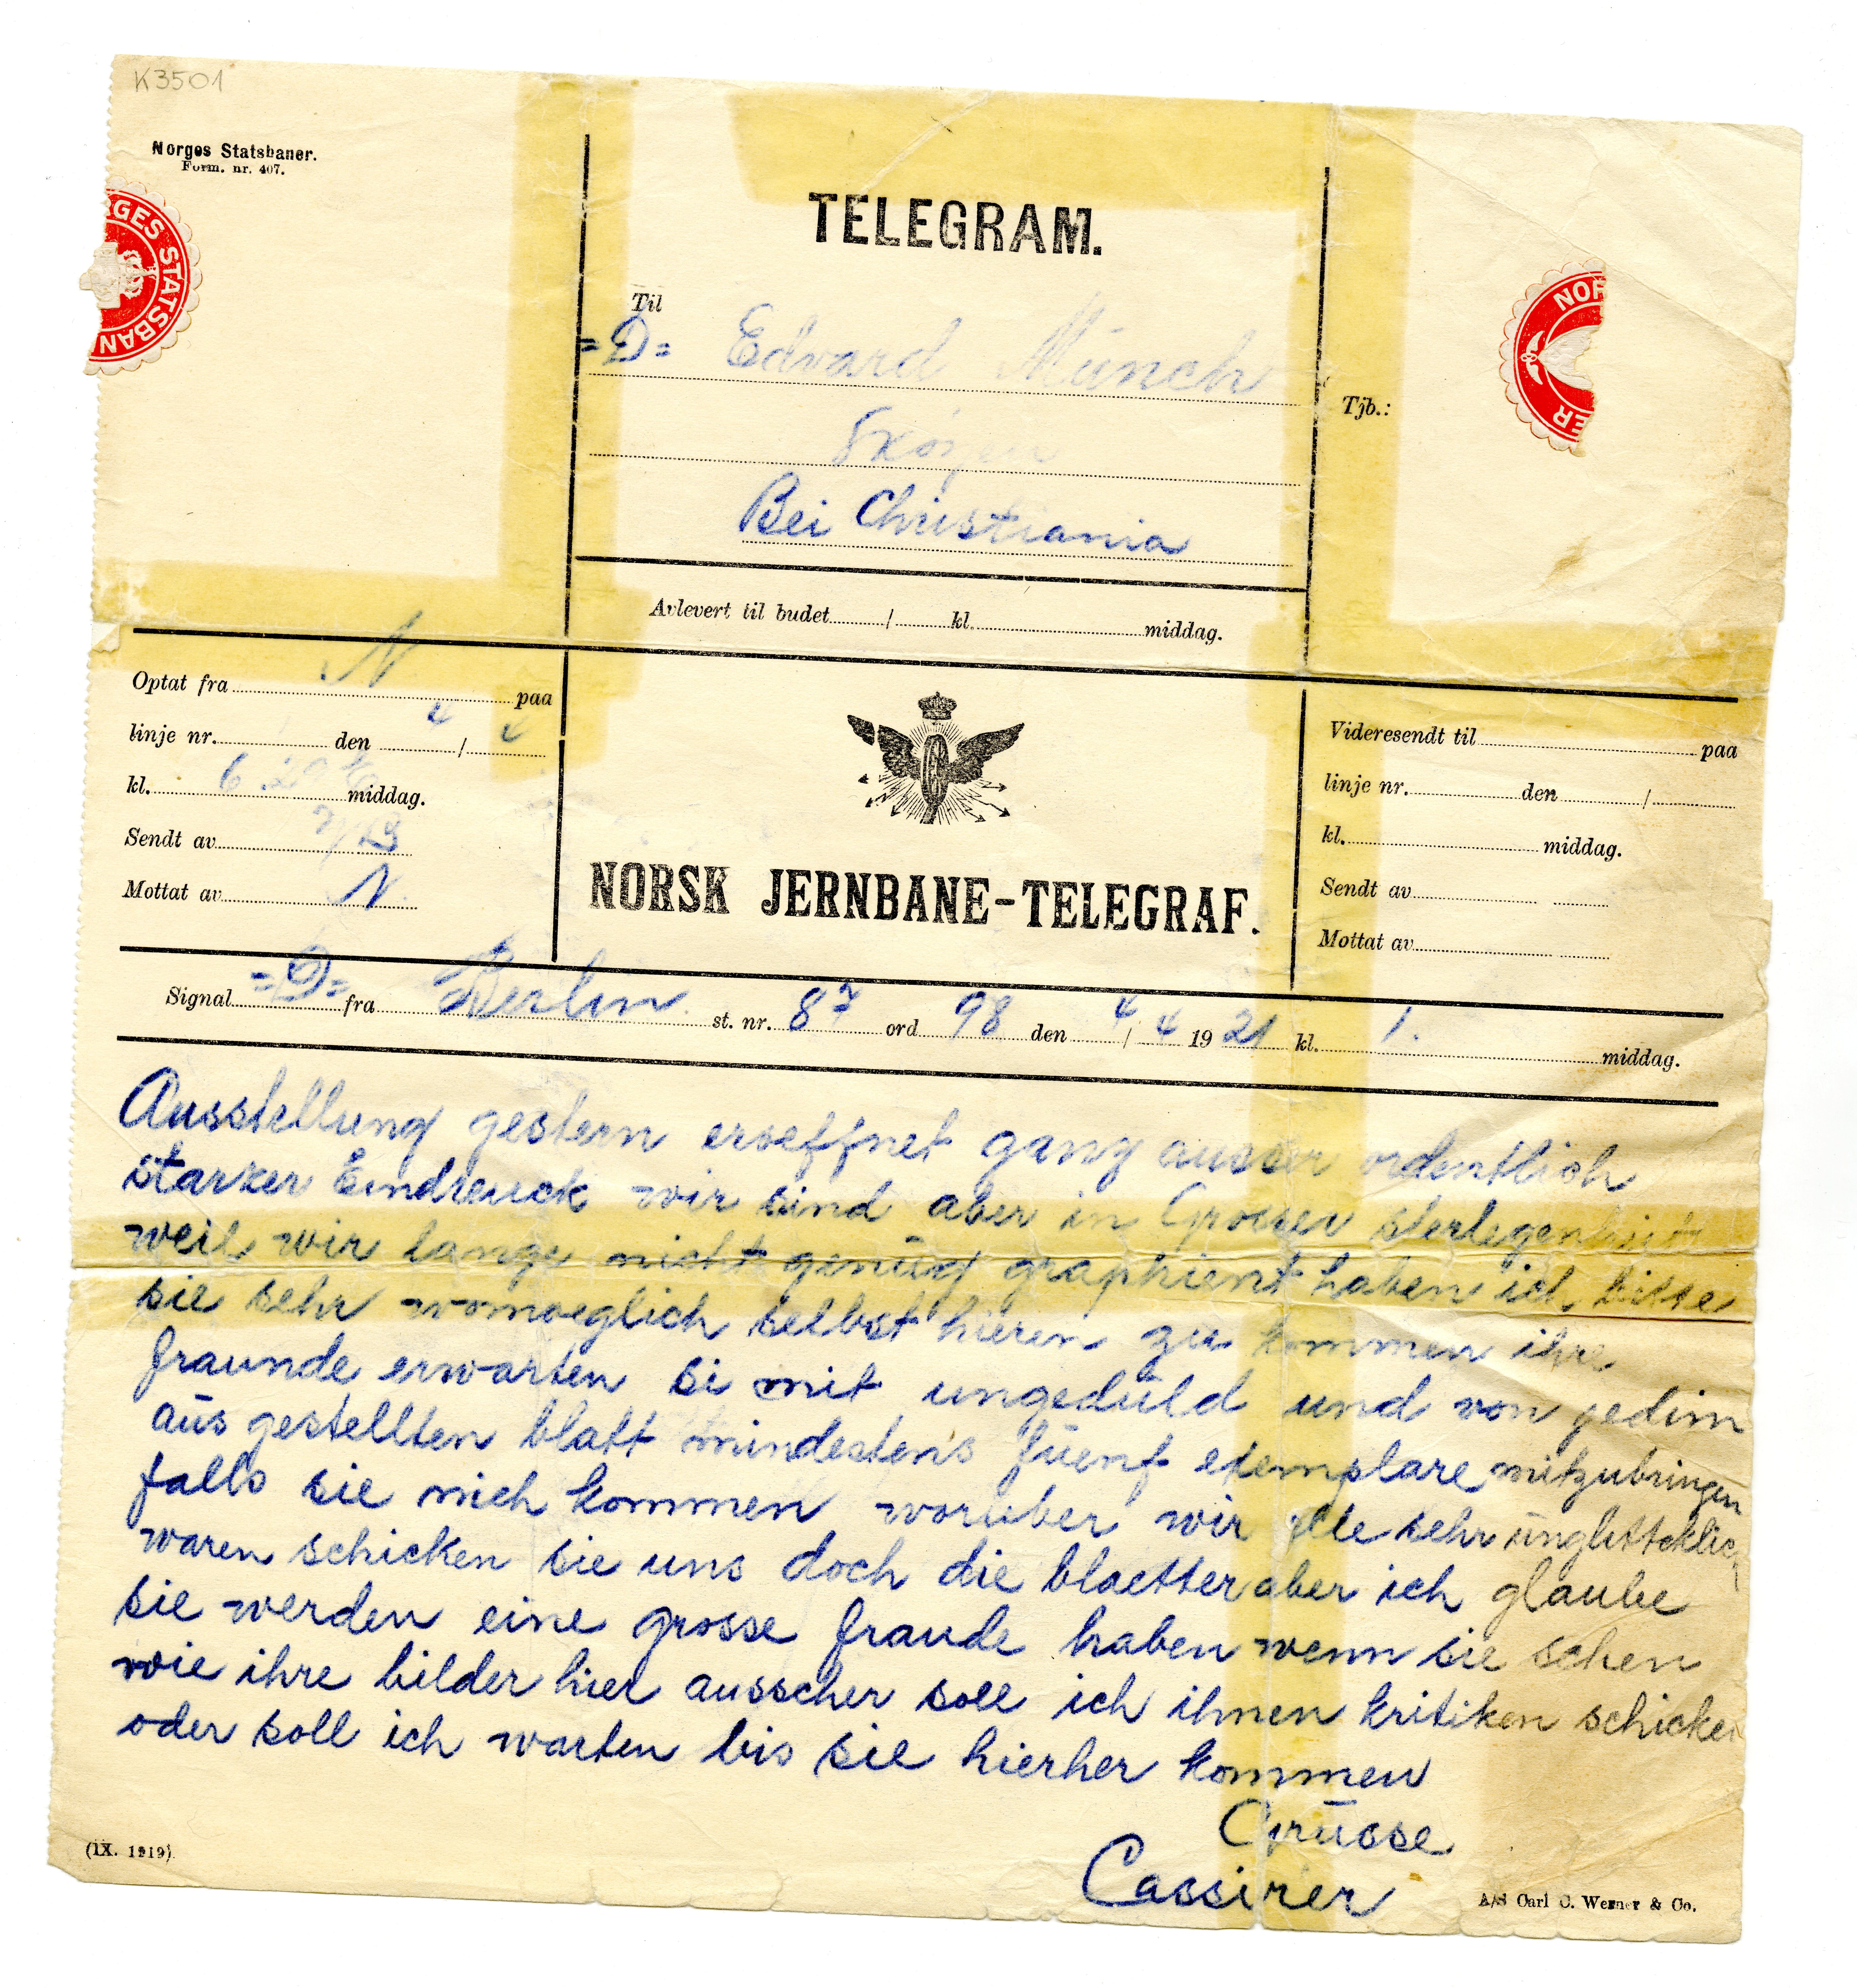 K3501
Norges Statsbaner.
Form. nr. 407.
GES STATSBAN
TELEGRAM.
Til
=D= Edvard Münch
Skøyen
Bei Christiania
Tjb.:
NOR
ER
Avlevert til budet / kl. middag.
Optat fra N paa
linje nr. den 4 / 4
kl. 6 20 middag.
Sendt av
Mottat av N.
NORSK JERNBANE-TELEGRAF.
Videresendt til paa
linje nr. den /
kl. middag.
Sendt av
Mottat av
Signal =D= fra Berlin st. nr. 87 ord 98 den 4 / 4 1921 kl. 1. middag.
Ausstellung gestern eroeffnet ganz ausser ordentlich
starker Eindreuck wir sind aber in Grosser
weil wir lange nicht genüg graphient haben ich bisse
sie sehr womoeglich selbst hieren zu kommen ihre
fraunde erwarten si mit ungedüld und von jedim
aüs gestellten blatt mindestens füenf exemplare mitzubringen
falls sie nich kommen woruber wir alle sehr
waren schicken sie uns doch die blaetter aber ich glaube
sie werden eine grosse fraude haben wenn sie sehen
wie ihre bilder hier ausseher soll ich ihnen kritiken schicken
oder soll ich warten bis sie hierher kommen
Grüsse
Cassirer
(IX. 1919)
A/S Carl C. Werner & Co.